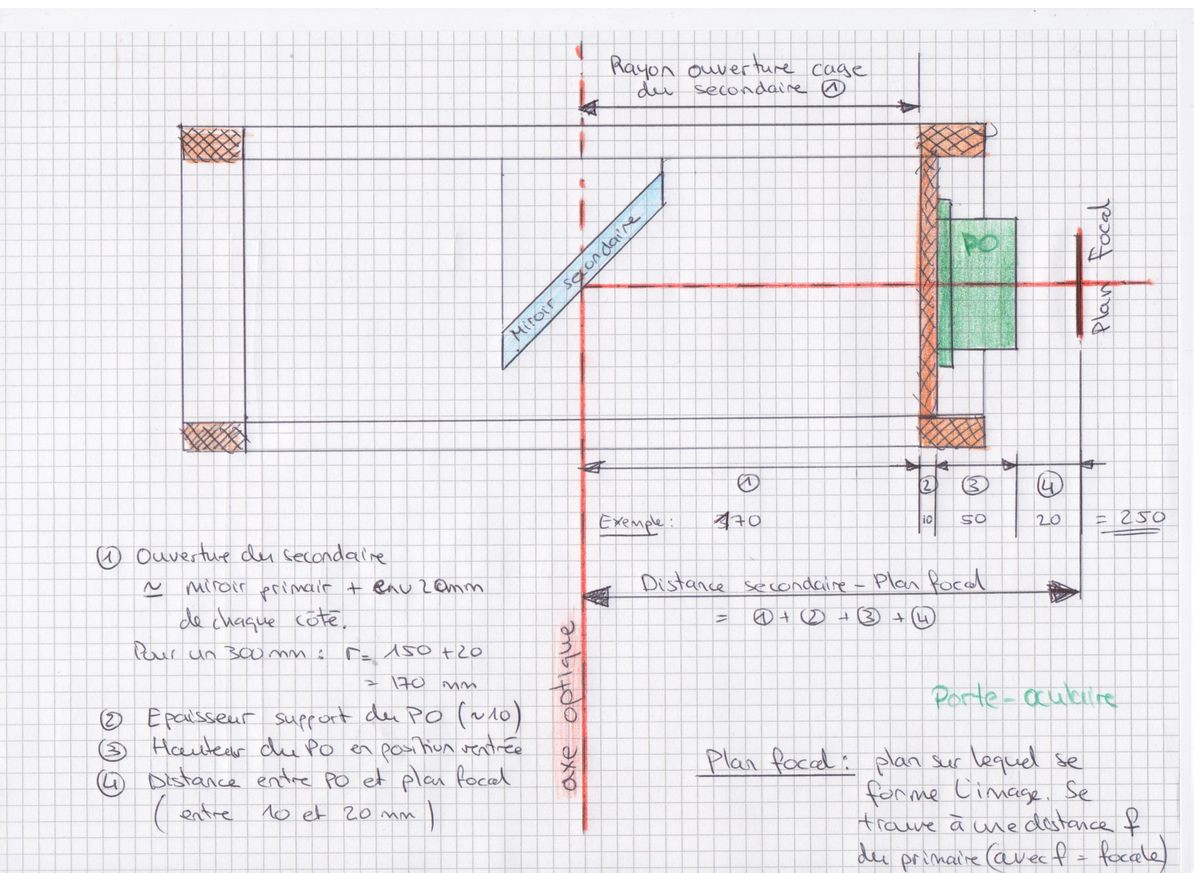 Rayon ouverture cage
du secondaire ①
Miroir secondaire
PO
Plan focal
① ② ③ ④
Exemple : 170 10 50 20 = 250
Distance secondaire - Plan focal
= ① + ② + ③ + ④
axe optique
① Ouverture du secondaire
≃ miroir primair + env 20mm
de chaque côté.
Pour un 300 mm : r = 150 + 20
= 170 mm
② Epaisseur support du PO (~10)
③ Hauteur du PO en position rentrée
④ Distance entre PO et plan focal
( entre 10 et 20 mm )
Porte-oculaire
Plan focal : plan sur lequel se
forme l'image. Se
trouve à une distance f
du primaire (avec f = focale)